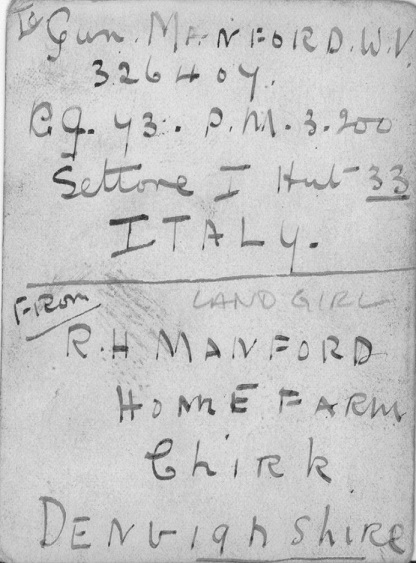 To Gun. MANFORD. W. V.
326407.
C.G. 73. P.M. 3.200
Settore I Hut 33
ITALY.
FROM LAND GIRL
R.H MANFORD
HOME FARM
Chirk
DENbighshire